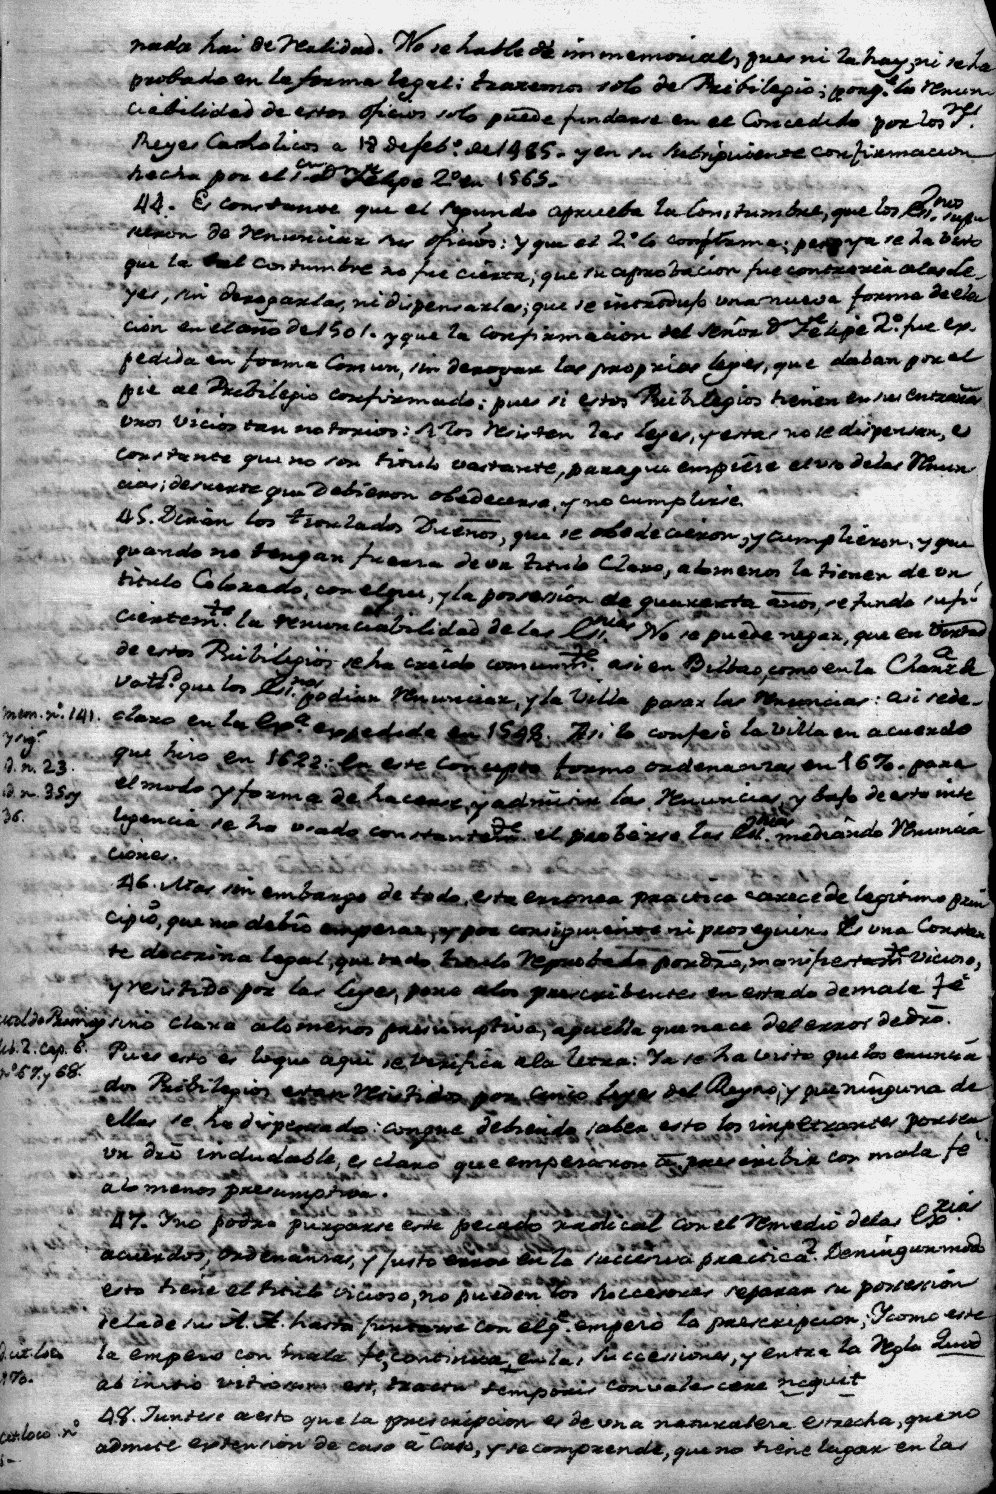 nada hai de realidad. No se hable de immemorial, pues ni la hay, ni se ha
probado en la forma legal: traremos solo de Pribilegio; porq.e la renun
ciabilidad de estos oficios solo puede fundarse en el Concedido por los S.res
Reyes Catholicos a 18 de feb.o de 1485. y en su subsiguiente confirmacion
hecha por el S.r Dn Felipe 2.o en 1565.
44. Es constante que el segundo aprueba la Constumbre, que los Ess.nos supu
sieron de renunciar sus oficios: y que el 2.o lo confirma; pero ya se ha visto
que la tal costumbre no fue cierta; que su aprobacion fue contraria a las Le-
yes, sin derogarlas, ni dispensarlas; que se introdujo una nueva forma de ele
cion en el año de 1501. y que la confirmacion del señor Dn Felipe 2.o fue ex-
pedida en forma Comun, sin derogar las proprias leyes, que daban por el
pie al Pribilegio confirmado: pues si estos Pribilegios tienen en sus entrañas
unos vicios tan notorios: si los resisten las leyes, y estas no se dispensan, es
constante que no son titulo vastante, para que empiere el uso de las Renun
cias; de suerte que debieron obedecerse, y no cumplirse.
45. Dirán los titulados Dueños, que se obedecieron, y cumplieron, y que
quando no tengan fuerza de un titulo Claro, a lo menos la tienen de un
titulo Colorado, con el que, y la possesión de quarenta años, se funda sufi-
cientem.te la renunciabilidad de las Ess.nias No se puede negar, que en virtud
de estos Pribilegios se ha creido comunm.te asi en Bilbao, como en la Chanz.a de
Vall.d que los Ess.nos podian renunciar, y la Villa pasar las Renuncias: asi se de-
mem. n.o 141.
y sig.e
claro en la Exp.a expedida en 1542. Asi lo confesó la villa en acuerdo
id. n. 23.
que hizo en 1622. en este concepto formo ordenanzas en 1670. para
id. n. 35 y
36.
el modo y forma de hacerse, y admitir las Renuncias, y bajo de esta inte
ligencia se ha usado constantem.te el proberse las Ess.nias mediando renuncia
ciones.
46. Mas sin embargo de todo, esta erronea practica carece de legitimo prin
cipio, que no debió emperar, y por consiguiente ni proseguir. Es una Constan
te doctrina legal, que todo titulo reprobado por dro, manifiestam.te vicioso,
y resistido por las leyes, pone a los prescribentes en estado de mala fé
lib. 2. cap. 6.
n.o 67. y 68.
sino clara a lo menos presumptiva, aquella que nace del error de dro.
Pues esto es lo que aqui se verifica a la letra: Ya se ha visto que los enuncia
dos Pribilegios estan resistidos por cinco leyes del Reyno, y que ninguna de
ellas se ha dispensado: conque debiendo saber esto los impetrantes por ser
un dro indudable, es claro que emperaron a prescribir con mala fé
a lo menos presumptiva.
47. Y no podra purgarse este pecado radical con el remedio de las Exp.rias
acuerdos, ordenanzas, y justo error en la succesiva practica. De ningun modo
esto tiene el titulo vicioso, no pueden los succesores separar su possesión
de la de su A. A. hasta juntarse con el q.e emperó la prescripcion; Y como este
d. cit. loco
n. 70.
la empero con mala fé, continua, en las succesiones, y entra la regla Quod
ab initio vitiosum est, tractu temporis convalescere nequit
48. Juntese a esto que la prescripcion es de una naturaleza estrecha, que no
cit. loco. n.o
admite extensión de caso à Caso, y se comprende, que no tiene lugar en las